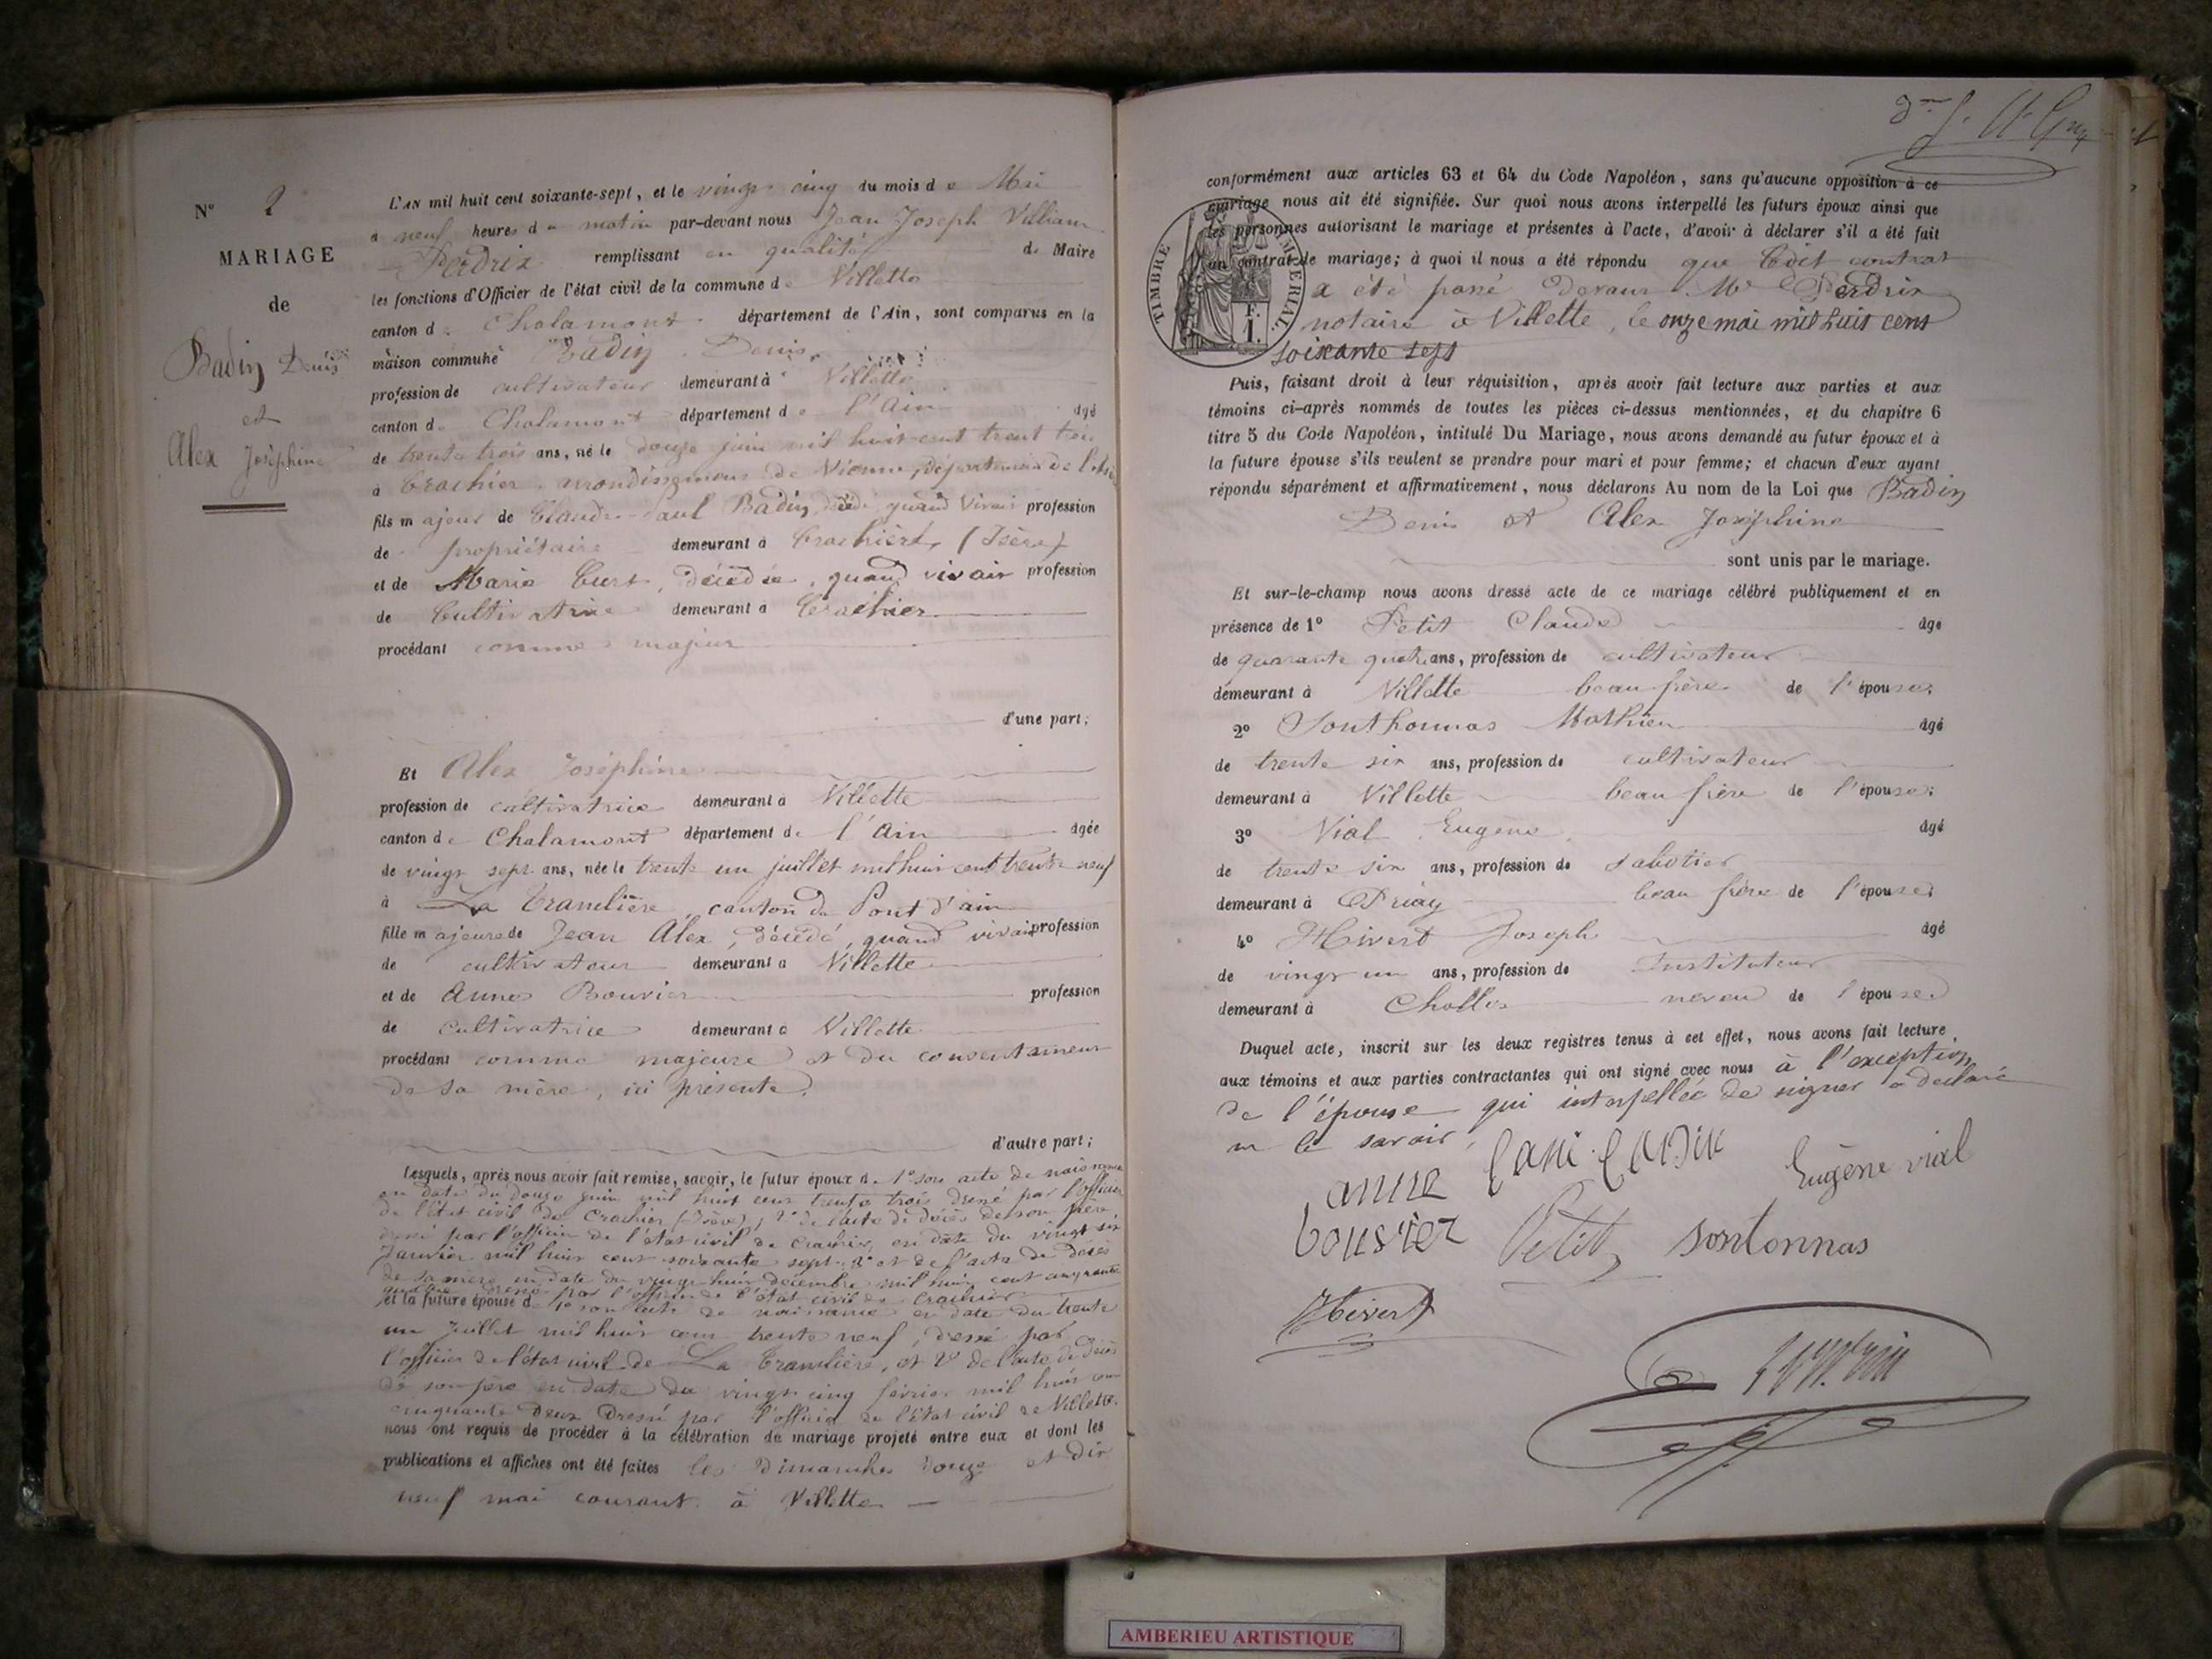 N° 2
MARIAGE
de
Badin Denis
et
Alex Joséphine
L'AN mil huit cent soixante-sept, et le vingt cinq du mois de Mai
à neuf heures du matin par-devant nous Jean Joseph William
Perdrix remplissant en qualité de Maire
les fonctions d'Officier de l'état civil de la commune de Villette
canton de Chalamont département de l'Ain, sont comparus en la
maison commune Badin Denis
profession de cultivateur demeurant à Villette
canton de Chalamont département de l'Ain âgé
de trente trois ans, né le douze juin mil huit cent trente trois
à Crachier arrondissement de Vienne, département de l'Isère
fils majeur de Claude Paul Badin, décédé quand vivait profession
de propriétaire demeurant à Crachier, (Isère)
et de Marie Curt, décédée, quand vivait profession
de Cultivatrice demeurant à Crachier
procédant comme majeur
d'une part;
Et Alex Joséphine
profession de cultivatrice demeurant à Villette
canton de Chalamont département de l'Ain âgée
de vingt sept ans, née le trente un juillet mil huit cent trente neuf
à La Tranclière canton de Pont d'ain
fille majeure de Jean Alex, décédé, quand vivait profession
de cultivateur demeurant à Villette
et de Anne Bouvier profession
de cultivatrice demeurant à Villette
procédant comme majeure et du consentement
de sa mère, ici présente.
d'autre part;
Lesquels, après nous avoir fait remise, savoir, le futur époux de 1° son acte de naissance
en date du douze juin mil huit cent trente trois dressé par l'officier
de l'état civil de Crachier (Isère), 2° de l'acte de décès de son père
dressé par l'officier de l'état civil de Crachier, en date du vingt six
Janvier mil huit cent soixante sept, 3° et de l'acte de décès
de sa mère en date du vingt huit décembre mil huit cent cinquante
dressé par l'officier de l'état civil de Crachier
et la future épouse de 1° son acte de naissance en date du trente
un Juillet mil huit cent trente neuf, dressé par
l'officier de l'état civil de La Tranclière, et 2° de l'acte de décès
de son père en date du vingt cinq février mil huit cent
cinquante deux dressé par l'officier de l'état civil de Villette.
nous ont requis de procéder à la célébration du mariage projeté entre eux et dont les
publications et affiches ont été faites les Dimanches douze et dix
neuf mai courant à Villette
conformément aux articles 63 et 64 du Code Napoléon, sans qu'aucune opposition à ce
mariage nous ait été signifiée. Sur quoi nous avons interpellé les futurs époux ainsi que
les personnes autorisant le mariage et présentes à l'acte, d'avoir à déclarer s'il a été fait
un contrat de mariage; à quoi il nous a été répondu que ledit contrat
a été passé devant Me Perdrix
notaire à Villette, le onze mai mil huit cent
soixante sept
TIMBRE IMPERIAL
1 F.
Puis, faisant droit à leur réquisition, après avoir fait lecture aux parties et aux
témoins ci-après nommés de toutes les pièces ci-dessus mentionnées, et du chapitre 6
titre 5 du Code Napoléon, intitulé Du Mariage, nous avons demandé au futur époux et à
la future épouse s'ils veulent se prendre pour mari et pour femme; et chacun d'eux ayant
répondu séparément et affirmativement, nous déclarons Au nom de la Loi que Badin
Denis et Alex Joséphine
sont unis par le mariage.
Et sur-le-champ nous avons dressé acte de ce mariage célébré publiquement et en
présence de 1° Petit Claude âgé
de quarante quatre ans, profession de cultivateur
demeurant à Villette beau frère de l'épouse;
2° Sonthonnas Mathieu âgé
de trente six ans, profession de cultivateur
demeurant à Villette beau frère de l'épouse;
3° Vial Eugène âgé
de trente six ans, profession de sabotier
demeurant à Priay beau frère de l'épouse;
4° Hivert Joseph âgé
de vingt un ans, profession de Instituteur
demeurant à Challes neveu de l'épouse.
Duquel acte, inscrit sur les deux registres tenus à cet effet, nous avons fait lecture
aux témoins et aux parties contractantes qui ont signé avec nous à l'exception
de l'épouse qui interpellée de signer a déclaré
ne le savoir,
anne
bouvier
Eugène vial
Petit
sontonnas
Hivert
AMBERIEU ARTISTIQUE